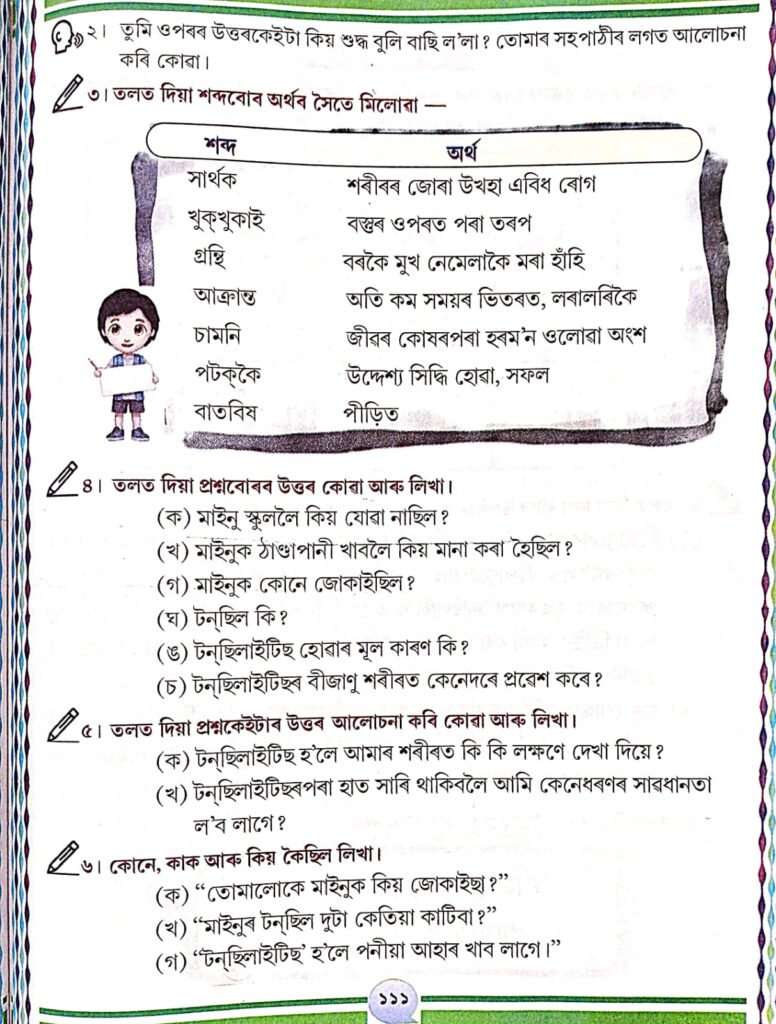 ২। তুমি ওপৰৰ উত্তৰকেইটা কিয় শুদ্ধ বুলি বাছি ল'লা? তোমাৰ সহপাঠীৰ লগত আলোচনা
কৰি কোৱা।
৩। তলত দিয়া শব্দবোৰ অৰ্থৰ সৈতে মিলোৱা —
শব্দ অৰ্থ
সাৰ্থক শৰীৰৰ জোৰা উখহা এবিধ ৰোগ
খুক্‌খুকাই বস্তুৰ ওপৰত পৰা তৰপ
গ্ৰন্থি বৰকৈ মুখ নেমেলাকৈ মৰা হাঁহি
আক্ৰান্ত অতি কম সময়ৰ ভিতৰত, লৰালৰিকৈ
চামনি জীৱৰ কোষৰপৰা হৰম'ন ওলোৱা অংশ
পটক্‌কৈ উদ্দেশ্য সিদ্ধি হোৱা, সফল
বাতবিষ পীড়িত
৪। তলত দিয়া প্ৰশ্নবোৰৰ উত্তৰ কোৱা আৰু লিখা।
(ক) মাইনু স্কুললৈ কিয় যোৱা নাছিল?
(খ) মাইনুক ঠাণ্ডাপানী খাবলৈ কিয় মানা কৰা হৈছিল?
(গ) মাইনুক কোনে জোকাইছিল?
(ঘ) টন্‌ছিল কি?
(ঙ) টন্‌ছিলাইটিছ হোৱাৰ মূল কাৰণ কি?
(চ) টন্‌ছিলাইটিছৰ বীজাণু শৰীৰত কেনেদৰে প্ৰৱেশ কৰে?
৫। তলত দিয়া প্ৰশ্নকেইটাৰ উত্তৰ আলোচনা কৰি কোৱা আৰু লিখা।
(ক) টন্‌ছিলাইটিছ হ'লে আমাৰ শৰীৰত কি কি লক্ষণে দেখা দিয়ে?
(খ) টন্‌ছিলাইটিছৰপৰা হাত সাৰি থাকিবলৈ আমি কেনেধৰণৰ সাৱধানতা
ল'ব লাগে?
৬। কোনে, কাক আৰু কিয় কৈছিল লিখা।
(ক) “তোমালোকে মাইনুক কিয় জোকাইছা?”
(খ) “মাইনুৰ টন্‌ছিল দুটা কেতিয়া কাটিবা?”
(গ) “টন্‌ছিলাইটিছ’ হ'লে পনীয়া আহাৰ খাব লাগে।”
১১১